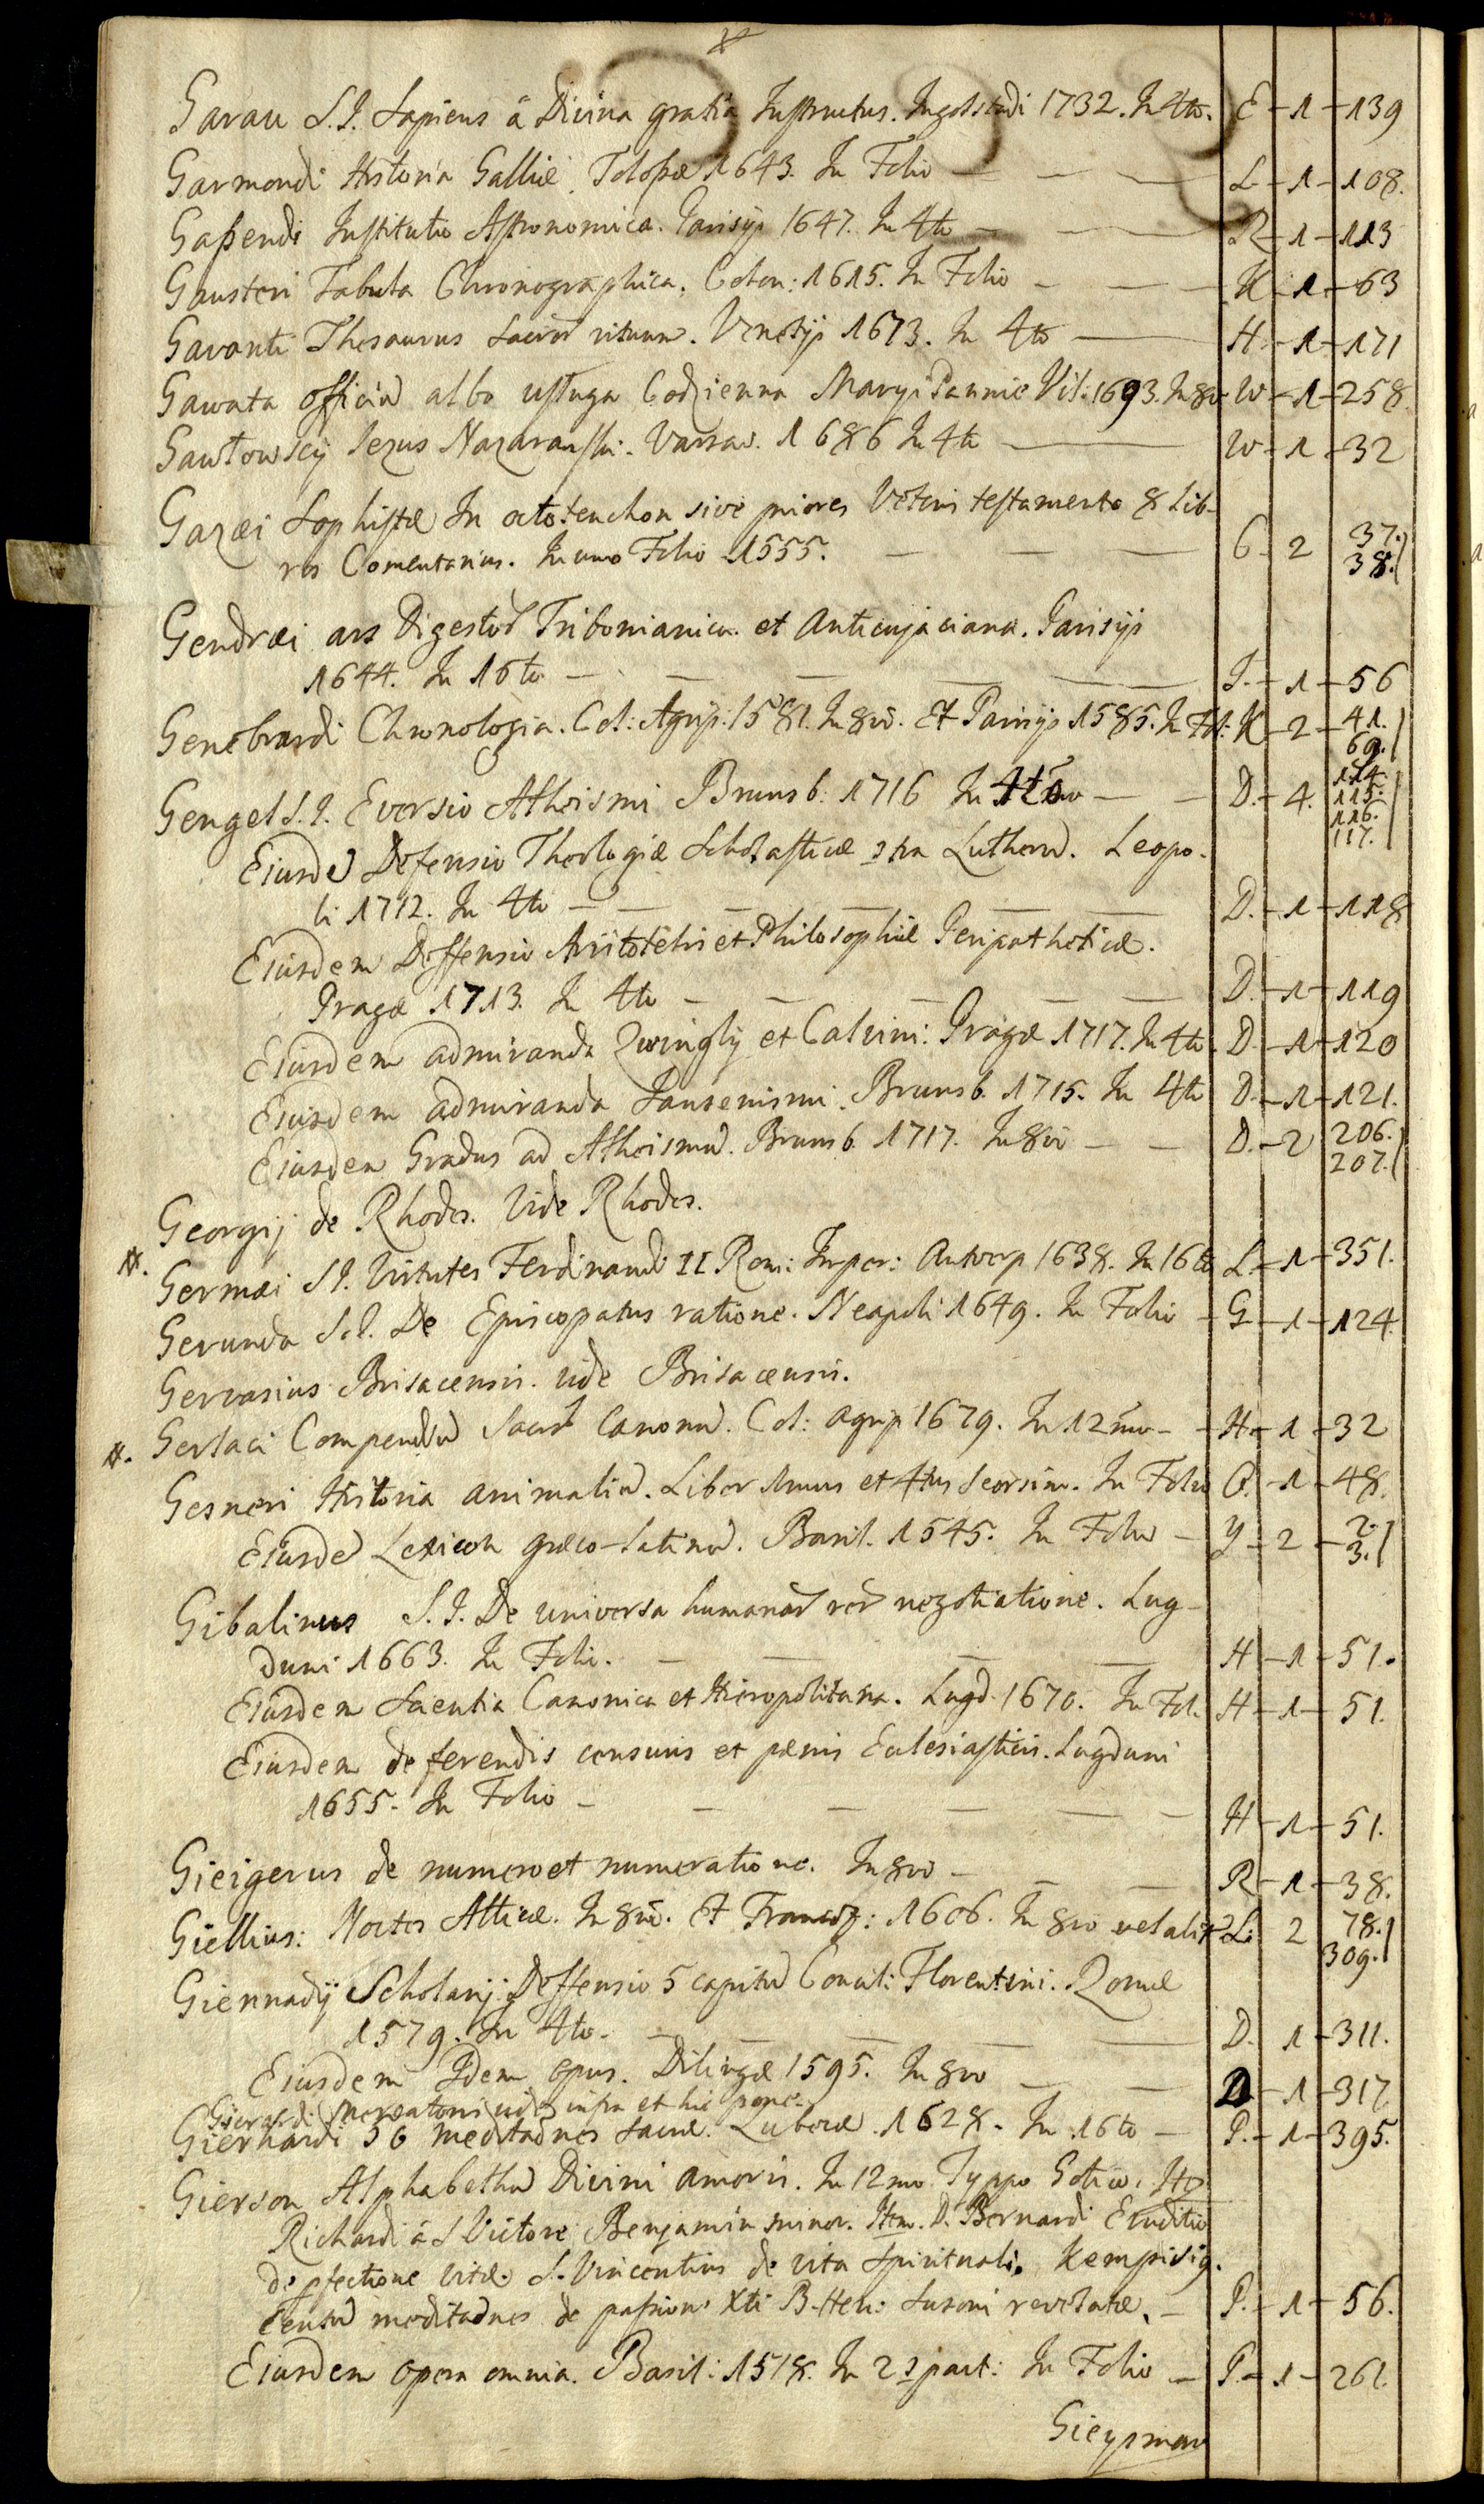 Garau S.I. Sapiens á Divina gratia Instructus. Ingolstadi 1732. In 4to. E - 1 - 139
Garmondi Historia Galliæ. Tolosæ 1643. In Folio — L - 1 - 108.
Gaßendi Institutio Astronomica. Parisijs 1647. In 4to — R - 1 - 113
Gausteri Tabula Chronographica. Colon: 1615. In Folio — K - 1 - 63
Gavanti Thesaurus sacror rituum. Venetijs 1673. In 4to — H - 1 - 171
Gawata officiũ albo usługa Codzienna Maryi Pannie Vil: 1693. In 8vo W - 1 - 258
Gawłowscij Jezus Nazarański. Varsav. 1686 In 4to — W - 1 - 32
Gazæi Sophistæ In octotenchon sive priores Veteris testamento 8 Lib-
ros Comentarius. In uno Folio 1555. — C - 2 37. 38.
Gendræi ars Digestor Tribonianica et Anticujaciana. Parisijs
1644. In 16to — I. - 1 - 56
Genebrardi Chronologia. Col: Agrip: 1581. In 8vo. Et Parisijs 1585. In Fol: K - 2 - 41. 69.
Gengel S.I. Eversio Atheismi Brunsb: 1716 In 4to — D. - 4. 114. 115. 116. 117.
Eiusdẽ Defensio Theologiæ Scholasticæ Lutherũ. Leopo-
li 1712. In 4to — D. - 1 - 118
Eiusdem Deffensio Aristotelis et Philosophiæ Peripatheticæ.
Pragæ 1713. In 4to — D. - 1 - 119
Eiusdem admiranda Zwinglij et Calvini: Pragæ 1717. In 4to D. - 1 - 120
Eiusdem admiranda Jansenismi. Brunsb. 1715. In 4to D. - 1 - 121.
Eiusdem Gradus ad Atheismũ. Brunsb. 1717. In 8vo — D. - 2 206. 207.
Georgij de Rhodes. Vide Rhodes.
#. Germæi S.I. Virtutes Ferdinandi II Rom: Imper: Antverp 1638. In 16to L - 1 - 351.
Gerunda Sol. De Episcopatus ratione. Neapoli 1649. In Folio - G - 1 - 124.
Gervasius Brisacensis. vide Brisacensis.
#. Gerlaci Compendiũ Sacror Canonũ. Col: Agrip 1679. In 12mo - H - 1 - 32
Gesneri Historia animaliũ. Liber 1mus et 4tus seorsim. In Folio Q. - 1 - 48.
Eiusdẽ Lexicon græco-latinũ. Basil. 1545. In Folio - Y - 2 - 2. 3.
Gibalinus S.I. De universa humanar rer negotiatione. Lug-
duni 1663. In Folio. — H - 1 - 51.
Eiusdem Scientia Canonica et Hieropolitana. Lugd. 1670. In Fol. H - 1 - 51.
Eiusdem de ferendis censuris et pænis Eclesiasticis. Lugduni
1655. In Folio — H - 1 - 51.
Gieigerus de numero et numeratione. In 8vo — R - 1 - 38.
Giellius: Noctes Atticæ. In 8vo. Et Francof: 1606. In 8vo L. 2 78. 309.
Giennadij Scholarij Deffensio 5 capitũ Concil: Florentini. Romæ
1579. In 4to. — D. 1 - 311.
Eiusdem Idem opus. Dilingæ 1595. In 8vo — D - 1 - 317
Gierardi Mercatoris vide infra et hic pone.
Gierhardi 50 meditaõnes sacræ. Lubecæ. 1628. In 16to — P. - 1 - 395.
Gierson Alphabethũ Divini amoris. In 12mo Typpo Gotico. Itẽ
Richardi á S. Victore Benjamin minor. Item. D. Bernardi Eruditio
de pfectione vitæ. S. Vincentius de vita spirituali. Kempisig.
centũ meditaõnes de passione Xti B. Hen: Susoni revelatæ. — P. - 1 - 56.
Eiusdem opera omnia. Basil: 1518. In 2 part: In Folio — P. - 1 - 261.
Gieysman